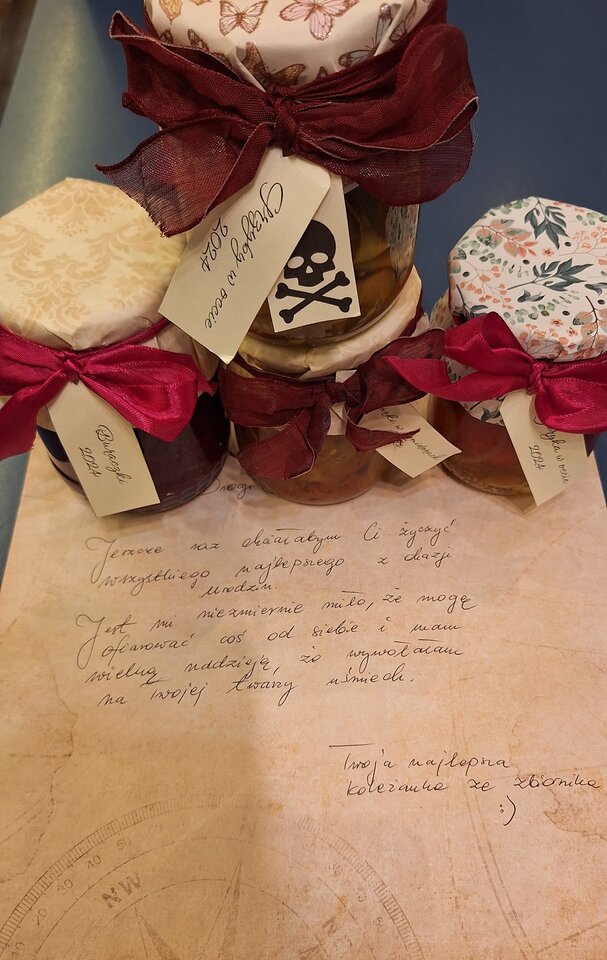 Grzyby w occie
2024
Buraczki
2024
w
w occie
2024
Drogi
Jeszcze raz chciałabym Ci życzyć
wszystkiego najlepszego z okazji
urodzin.
Jest mi niezmiernie miło, że mogę
ofiarować coś od siebie i mam
wielką nadzieję, że wywołałam
na Twojej twarzy uśmiech.
Twoja najlepsza
koleżanka ze zbiornika
:)
40
50
60
30
40
50
60
20
10
NW